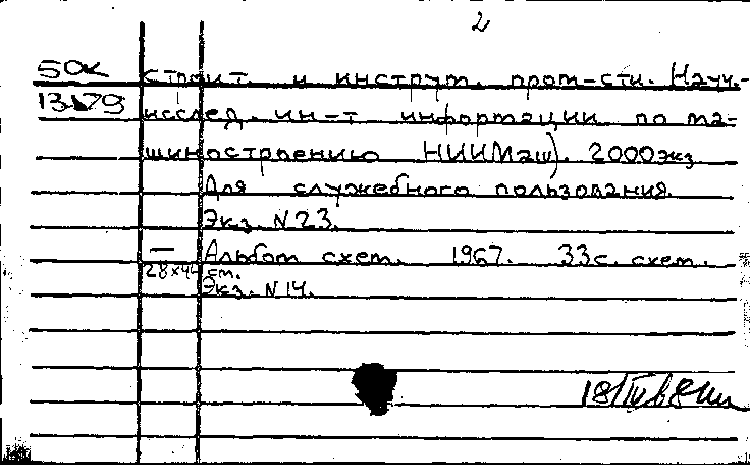 2
50к строит. и инструм. пром-сти. Науч.-
исслед. ин-т информации по ма-
шиностроению НИИМаш). 2000экз
Для служебного пользования.
Экз. N 23.
— Альбом схем. 1967. 33с. схем.
28×44 см.
Экз. N 14.